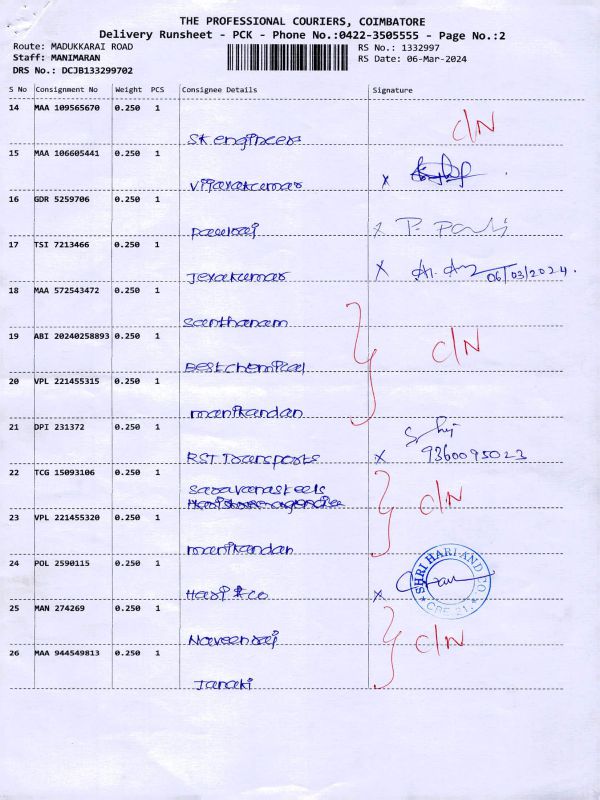 THE PROFESSIONAL COURIERS, COIMBATORE
Delivery Runsheet - PCK - Phone No.:0422-3505555 - Page No.:2
Route: MADUKKARAI ROAD
RS No.: 1332997
Staff: MANIMARAN
RS Date: 06-Mar-2024
DRS No.: DCJB133299702
S No Consignment No Weight PCS Consignee Details Signature
14 MAA 109565670 0.250 1
C/N
SK engineers
15 MAA 106605441 0.250 1
Vijayakumar x
16 GDR 5259706 0.250 1
Pawlraj x P. Pauli
17 TSI 7213466 0.250 1
Jeyakumar x 06/03/2024.
18 MAA 572543472 0.250 1
Santhanam
19 ABI 20240258893 0.250 1
C/N
Best chemical
20 VPL 221455315 0.250 1
manikandan
21 DPI 231372 0.250 1
RST Transports x 9360095023
22 TCG 15093106 0.250 1
Saravanasteels
C/N
23 VPL 221455320 0.250 1
manikandan
24 POL 2590115 0.250 1
Hari & co x
SHRI HARI AND CO
CBE 21.
25 MAN 274269 0.250 1
Naveenraj
C/N
26 MAA 944549813 0.250 1
Janaki